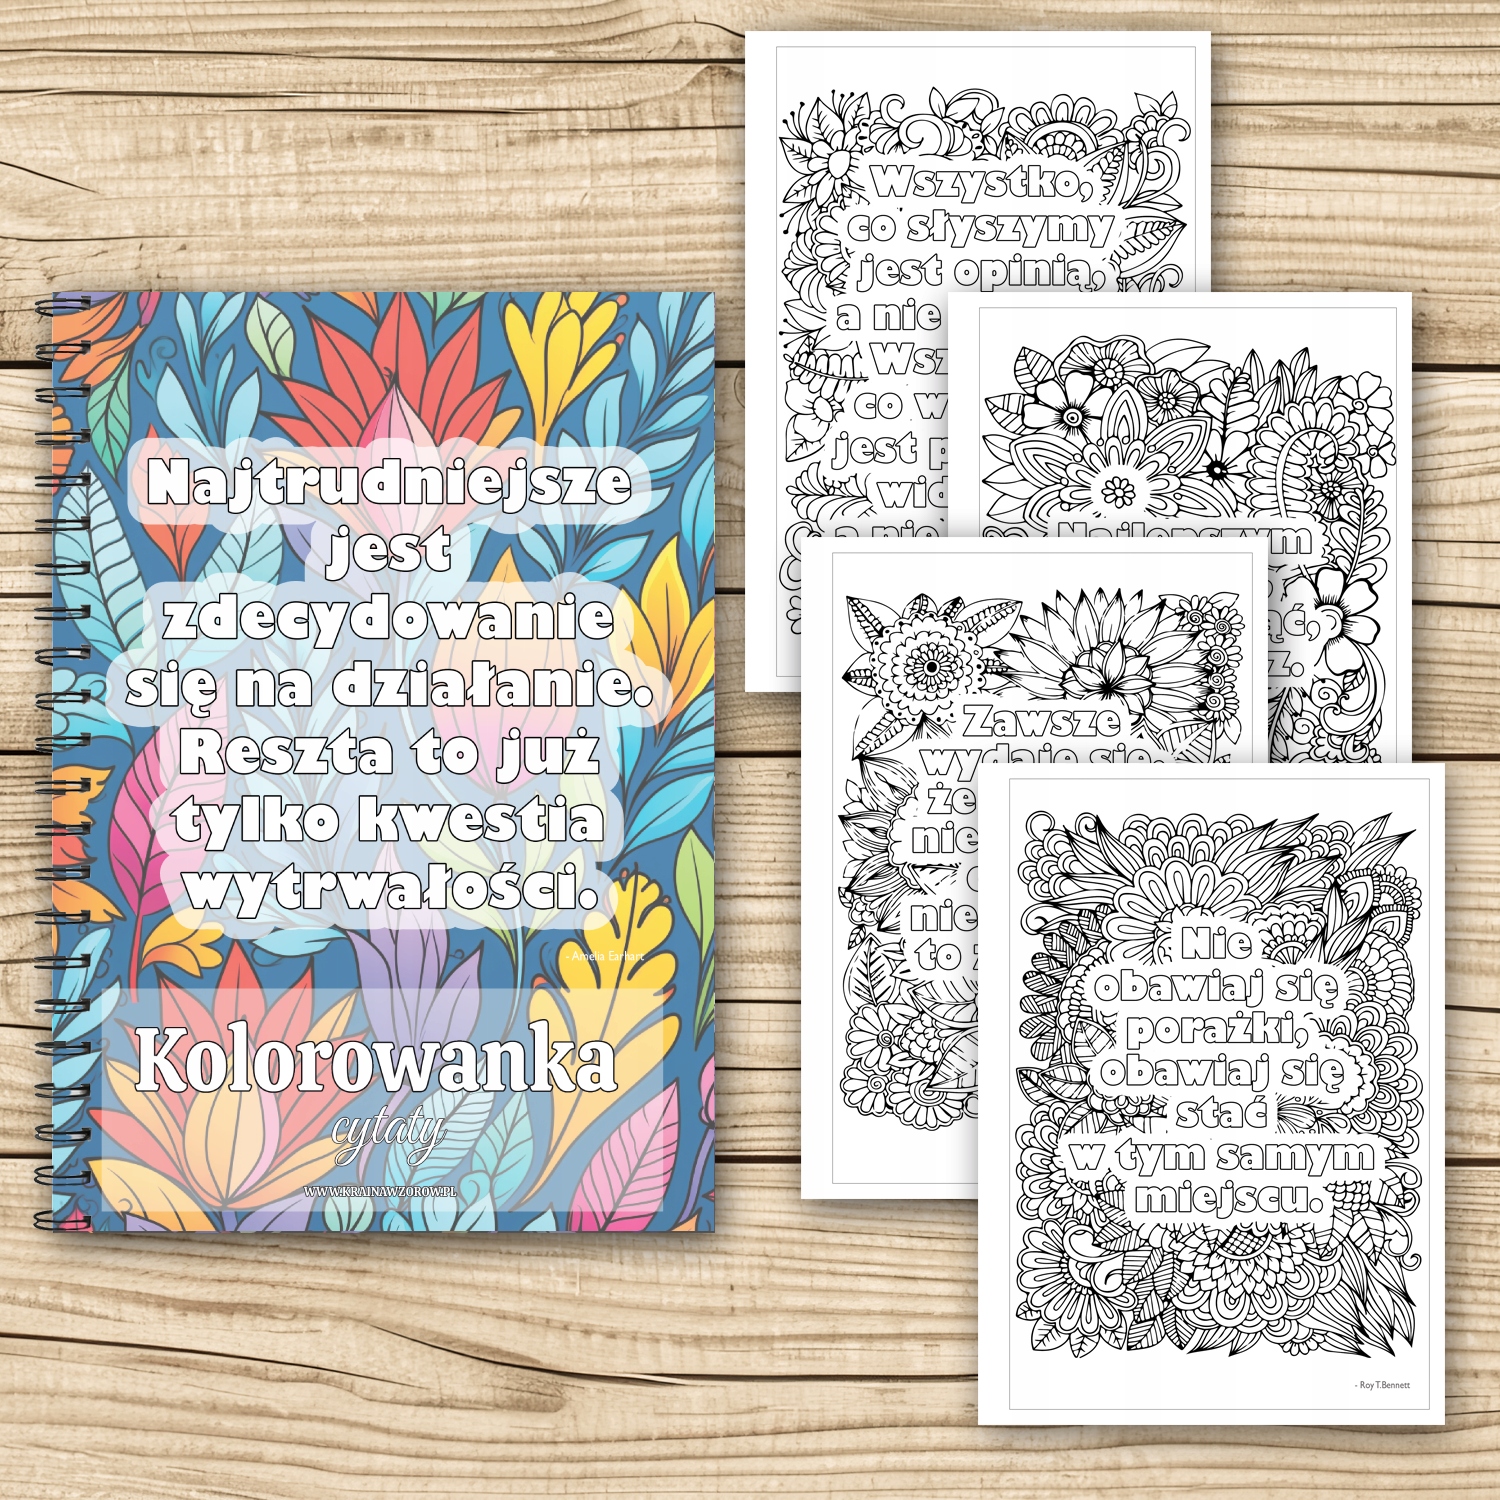 Najtrudniejsze
jest
zdecydowanie
się na działanie.
Reszta to już
tylko kwestia
wytrwałości.
- Amelia Earhart
Kolorowanka
cytaty
WWW.KRAINAWZOROW.PL
Wszystko,
co słyszymy
jest opinią,
a nie
co
jest
a nie
Najlepszym
Zawsze
wydaje się,
że
nie
nie
to
Nie
obawiaj się
porażki,
obawiaj się
stać
w tym samym
miejscu.
- Roy T.Bennett